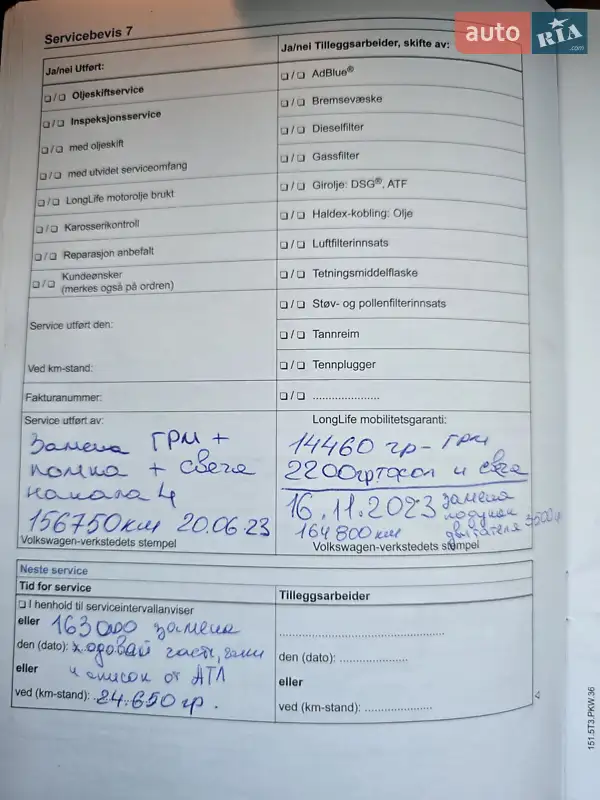 auto RIA .com
Servicebevis 7
Ja/nei Utført:
❏/❏ Oljeskiftservice
❏/❏ Inspeksjonsservice
❏/❏ med oljeskift
❏/❏ med utvidet serviceomfang
❏/❏ LongLife motorolje brukt
❏/❏ Karosserikontroll
❏/❏ Reparasjon anbefalt
❏/❏ Kundeønsker
(merkes også på ordren)
Service utført den:
Ved km-stand:
Fakturanummer:
Ja/nei Tilleggsarbeider, skifte av:
❏/❏ AdBlue®
❏/❏ Bremsevæske
❏/❏ Dieselfilter
❏/❏ Gassfilter
❏/❏ Girolje: DSG®, ATF
❏/❏ Haldex-kobling: Olje
❏/❏ Luftfilterinnsats
❏/❏ Tetningsmiddelflaske
❏/❏ Støv- og pollenfilterinnsats
❏/❏ Tannreim
❏/❏ Tennplugger
❏/❏ .....................
Service utført av:
Замена ГРМ +
помпа + свеча
накала 4
156750км 20.06.23
Volkswagen-verkstedets stempel
LongLife mobilitetsgaranti:
14460 гр – ГРМ
2200гр тосол и свеча
16.11.2023 замена
подушек
164800км двигателя 3500
Volkswagen-verkstedets stempel
Neste service
Tid for service
❏ I henhold til serviceintervallanviser
eller 163000 замена
den (dato): ходовай части,
eller и список от АТЛ
ved (km-stand): 24.650 гр.
Tilleggsarbeider
den (dato): .....................
eller
ved (km-stand): .....................
151.5T3.PKW.36